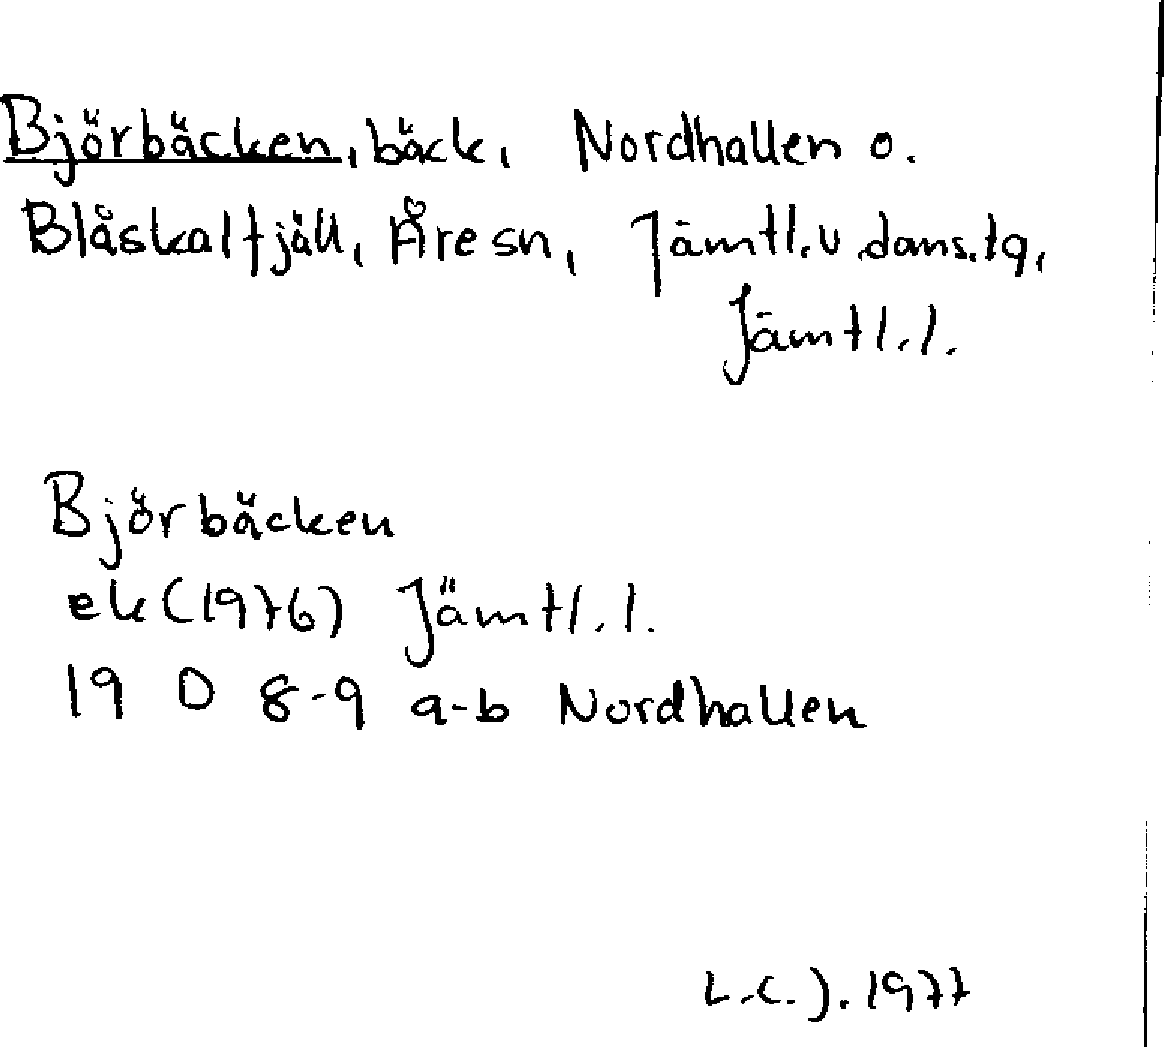 Björbäcken, bäck, Nordhallen o.
Blåskalfjäll, Åre sn, Jämtl. v doms.tg,
Jämtl. l.
Björbäcken
ek (1976) Jämtl. l.
19 D 8-9 a-b Nordhallen
L.C.J. 1977